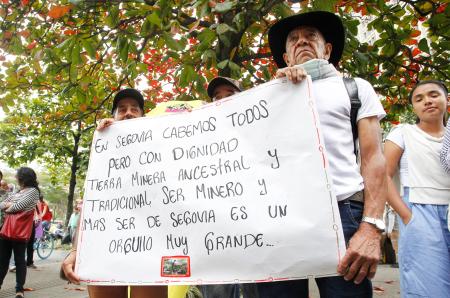 EN SEGOVIA CABEMOS TODOS
PERO CON DIGNIDAD
TIERRA MINERA ANCESTRAL Y
TRADICIONAL, SER MINERO Y
MAS SER DE SEGOVIA ES UN
ORGULLO MUY GRANDE...